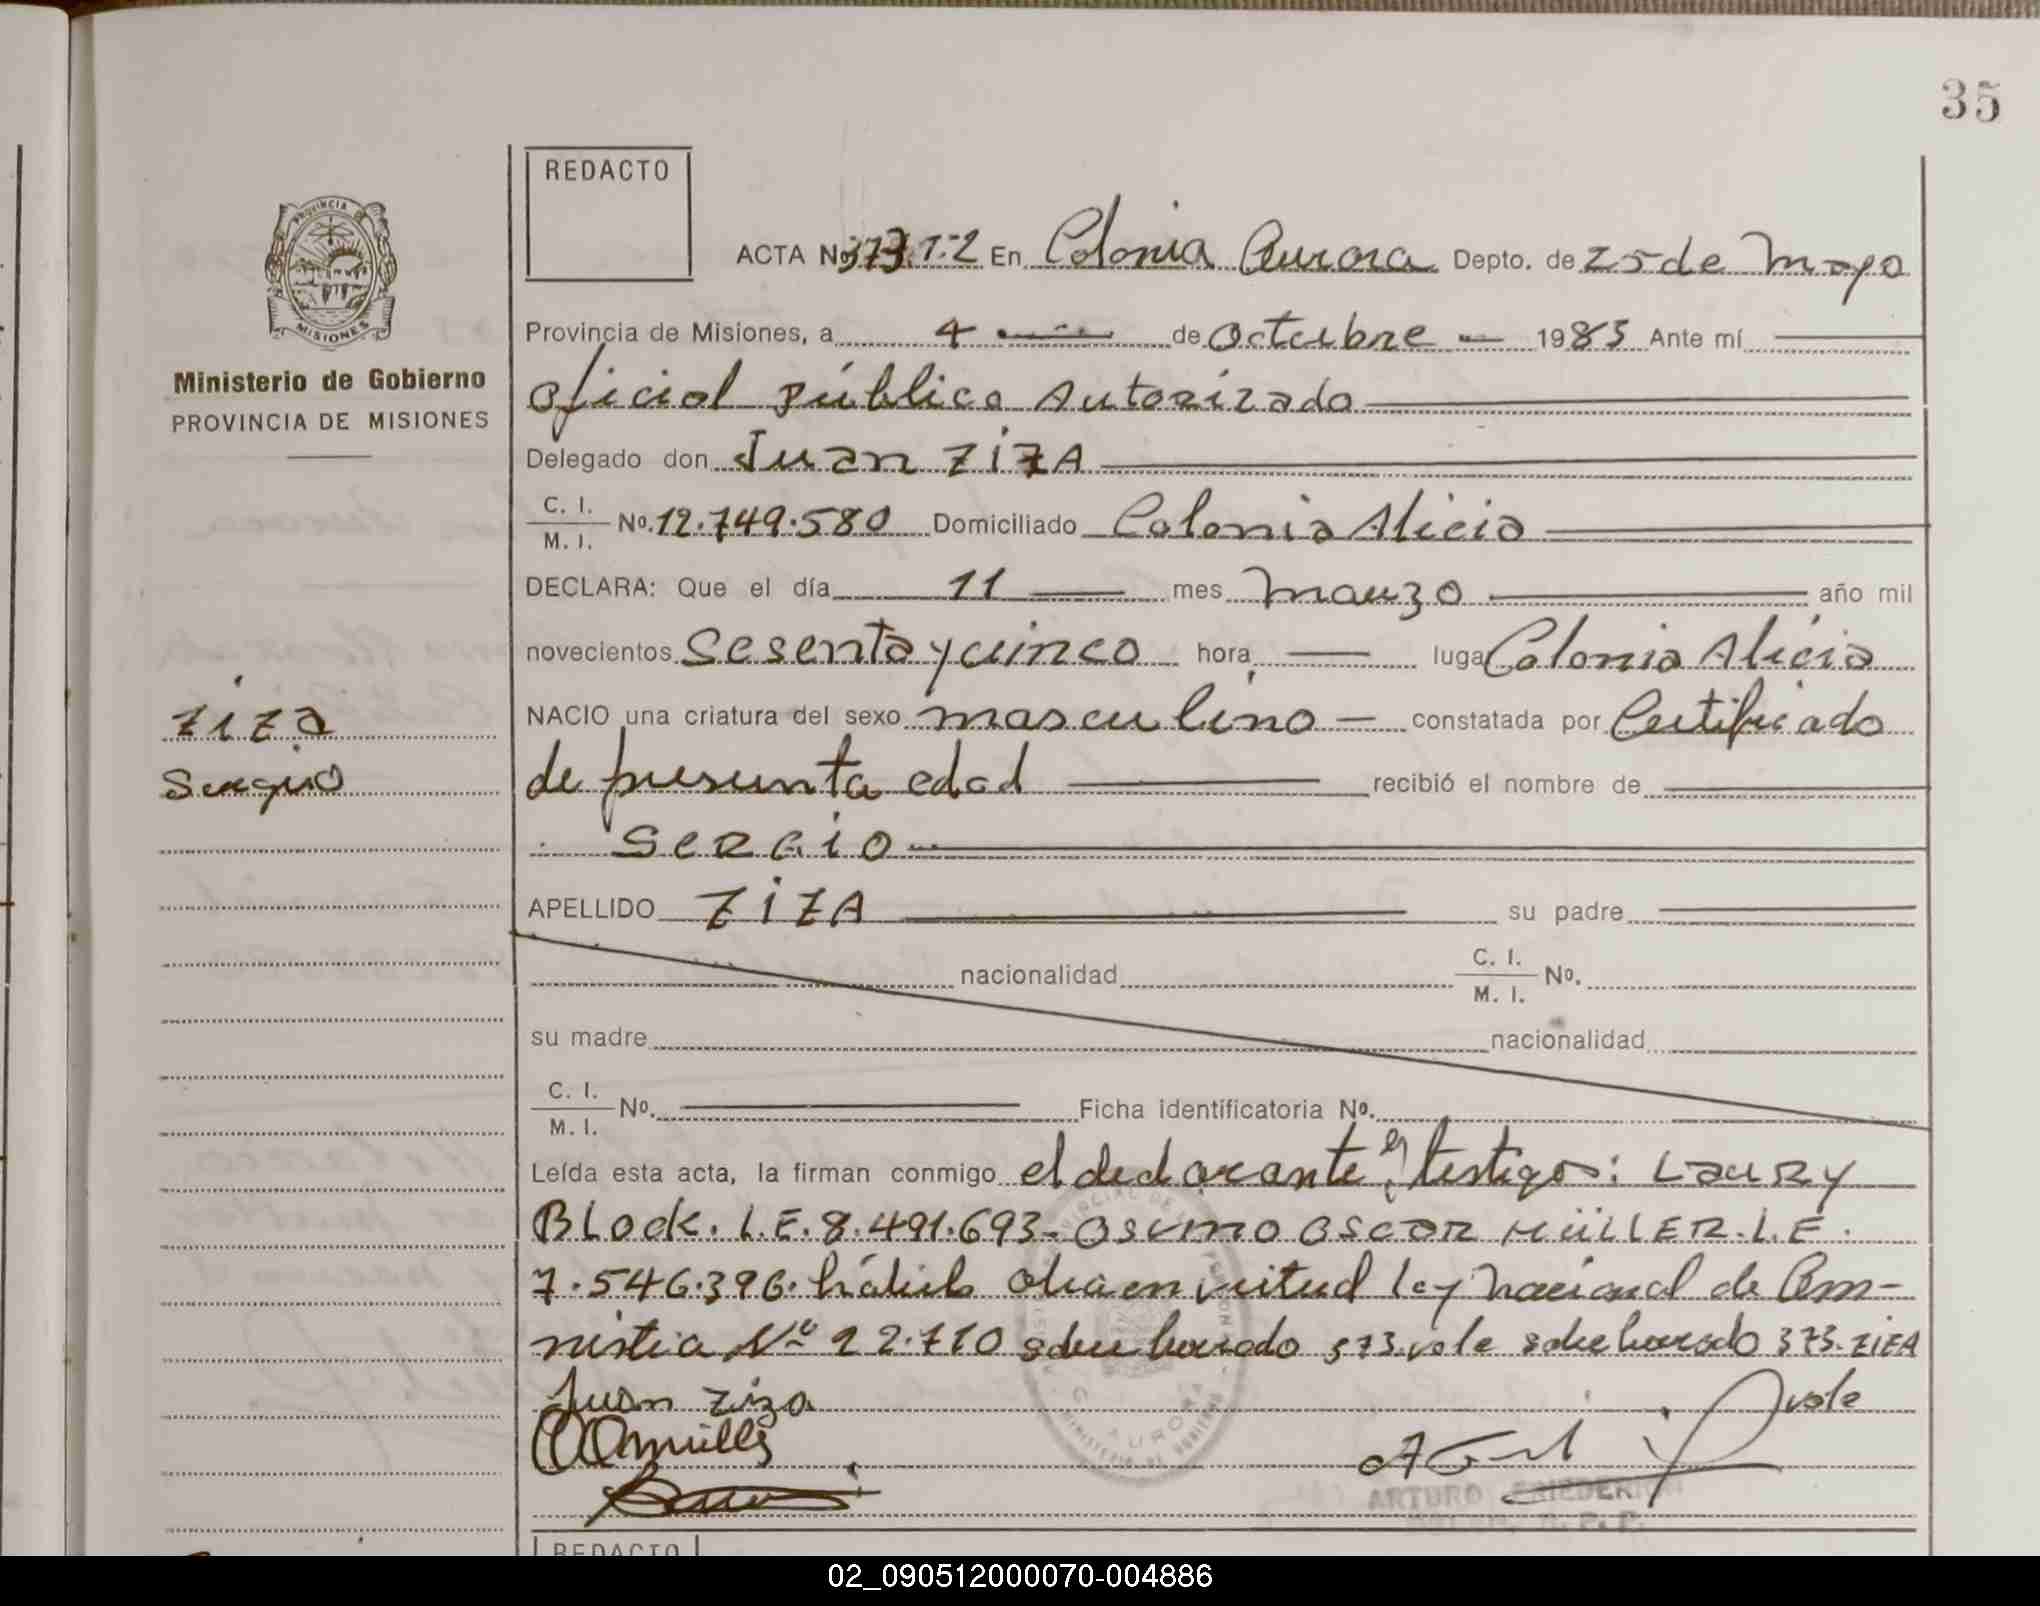 35
REDACTO
PROVINCIA DE
MISIONES
Ministerio de Gobierno
PROVINCIA DE MISIONES
ACTA No 373.T-2 En Colonia Aurora Depto. de 25 de Mayo
Provincia de Misiones, a 4 de octubre 1983 Ante mí
oficial público Autorizado
Delegado don Juan ZiZA
C. I.
M. I. No. 12.749.580 Domiciliado Colonia Alicia
DECLARA: Que el día 11 mes marzo año mil
novecientos sesenta y cinco hora luga Colonia Alicia
ZiZa
NACIO una criatura del sexo masculino constatada por Certificado
Sergio
de presunta edad recibió el nombre de
SERGiO
APELLIDO ZiZA su padre
nacionalidad C. I.
M. I. No.
su madre nacionalidad
C. I.
M. I. No. Ficha identificatoria No.
Leída esta acta, la firman conmigo el declarante y testigos: LAURY
BLOCK. L.E. 8.491.693- OSCAR MÜLLER. L.E.
7.546.396. hábiles en virtud ley Nacional de Am-
nistia Nº 22.710 sobre borrado 373. vale sobre borrado 373. ZiZA
Juan Ziza
vale
ARTURO FRIEDERICH
AURORA
REDACTO
02_090512000070-004886